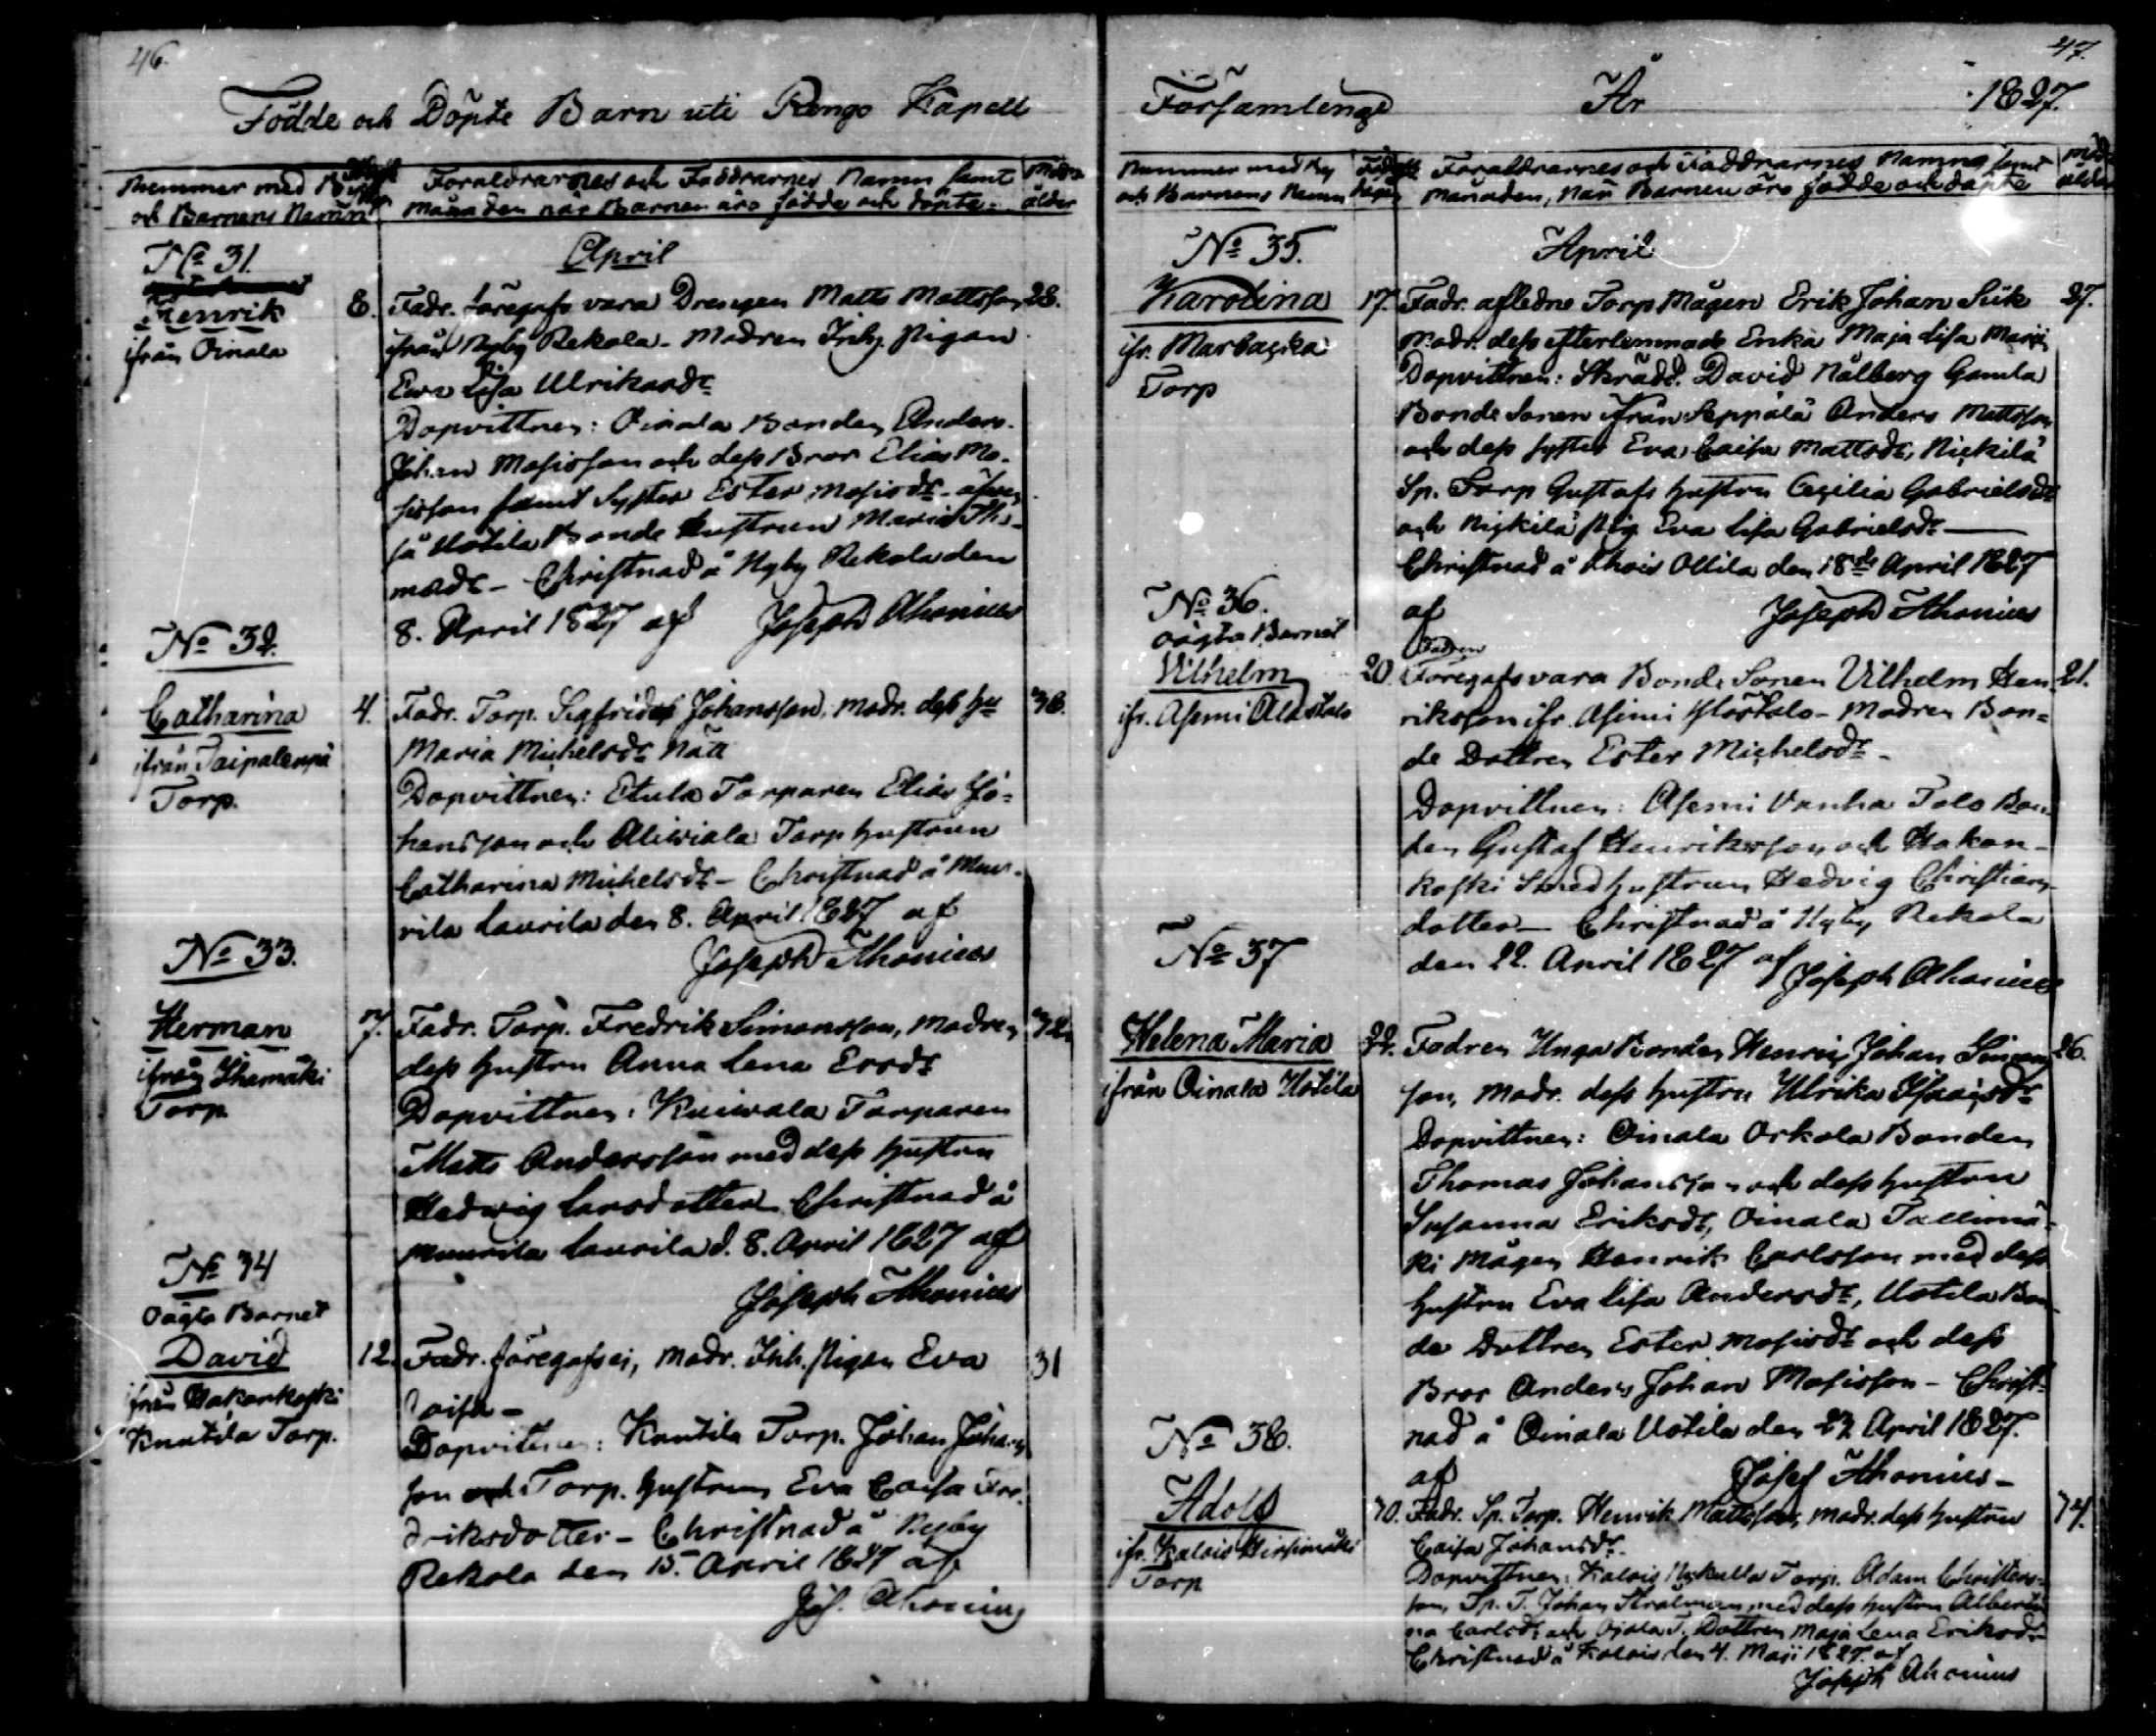 46.
Födde och Döpte Barn uti Rengo Kapell
Nummer med
och Barnens Namn
Föraldrarnes och Faddrarnes Namn samt
månaden när Barnen äro födde och döpte.
ålder
No 31.
Henrik
ifrån Oinala
April
8. Fadr. föregafs vara Drengen Matts Mattsson 28.
ifrån Nyby Rekola. Modren Inh. Pigan
Eva Lisa Ulriksdr
Dopvittnen: Oinala Bonden Anders
Johan Mosisson och dess Bror Elias Mo-
sisson samt Syster Ester Mosisdr
så Uotila Bonde hustrun Maria Tho-
masdr - Christnad å Nyby Rekola den
8. April 1827 af Joseph Ahonius
No 32.
Catharina
ifrån Taipalenpä
Torp.
4. Fadr. Torp. Sigfrid Johansson, modr. dess hu
36.
Maria Michelsdr Nätt
Dopvittnen: Etula Torparen Elias Jo-
hansson och Aliwiala Torp hustrun
Catharina Michelsdr - Christnad å Muu-
rila Laurila den 8. April 1827 af
Joseph Ahonius
No 33.
Herman
ifrån Ihamäki
Torp
7. Fadr. Torp. Fredrik Simonsson, modren 32.
dess hustru Anna Lena Ersdr
Dopvittnen: Kuiwala Torparen
Matts Andersson med dess hustru
Hedwig Larsdotter Christnad å
Muurila Laurila d. 8. April 1827 af
Joseph Ahonius
No 34
Oägta Barnet
David
ifrån Hakankoski
Knutila Torp.
12. Fadr. föregafs ej, modr. Inh. Pigan Eva 31
Caisa -
Dopvittnen: Knutila Torp. Johan Johans
son och Torp. hustrun Eva Caisa Fre
driksdotter - Christnad å Nyby
Rekola den 15. April 1827 af
Jos. Ahonius
47.
Församlings År 1827.
Nummer med
och Barnens Namn
Föraldrarnes och Faddrarnes Namn samt
månaden, När Barnen äro födde och döpte
ålder
No 35.
Karolina
ifr. Marbacka
Torp
April
17. Fadr. afledne Torp Mågen Erik Johan Siik 27.
modr. dess efterlemnade Enka Maja Lisa
Dopvittnen: Skrädd. David Nålberg Gamla
Bonde Sonen ifrån Seppälä Anders Mattsson
och dess syster Eva Caisa Mattsdr, Nickilä
Sp. Torp Gustafs hustru Cecilia Gabrielsdr
och Nickilä Pig. Eva Lisa Gabrielsdr
Christnad å Ahois Ollila den 18de April 1827
af Joseph Ahonius
No 36.
oägta Barnet
Vilhelm
ifr. Asemi Alastalo
Fadren
20. Föregafs vara Bonde Sonen Vilhelm Hen 21.
riksson ifr. Asemi - Modren Bon=
de Dottren Ester Michelsdr -
Dopvittnen: Asemi Vanha Talo Bon
den Gustaf Henriksson och Hakan-
koski Smed hustrun Hedvig Christians
dotter - Christnad å Nyby Rekola
den 22. April 1827 af Joseph Ahonius
No 37
Helena Maria
ifrån Oinala Uotila
22. Fadren Unga Bonden Henric Johan Simons 26.
son, modr. dess hustru Ulrika Isaacsdr
Dopvittnen: Oinala Orkola Bonden
Thomas Johansson och dess hustru
Susanna Eriksdr, Oinala Tallimä-
ki Mågen Henrik Carlsson med dess
hustru Eva Lisa Andersdr, Uotila Bon
de Dottren Ester Mosisdr och dess
Bror Anders Johan Mosisson - Christ-
nad å Oinala Uotila den 23 April 1827.
af Josef Ahonius -
No 38.
Adolf
ifr. Kalois Hirsimäki
Torp
30. Fadr. Sp. Torp. Henrik Mattsson, modr. dess hustru 34.
Caisa Johansdr.
Dopvittnen: Kalois Torp. Adam Christers-
son, Sp. T. Johan Stralman med dess hustru Alberti
na Carlsdr och Ojala T. Dottren Maja Lena Eriksdr
Christnad å Kalois den 4. Maji 1827. af
Joseph Ahonius